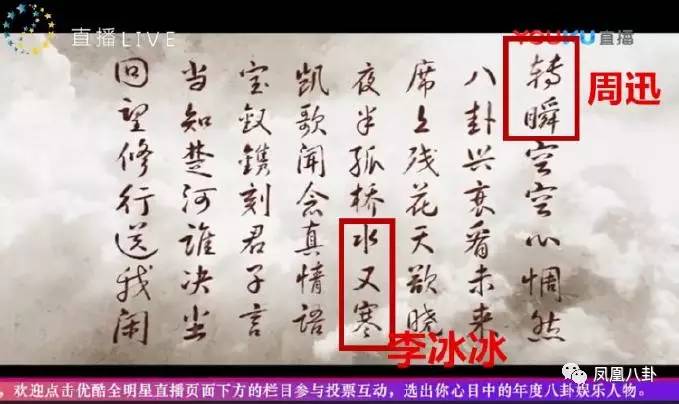 直播LIVE
YOUKU直播
转瞬空空心惆然
八卦兴衰看未来
席上残花天欲晓
夜半孤桥水又寒
凯歌闻念真情语
宝钗镌刻君子言
当知楚河谁决
回望修行送我
周迅
李冰冰
凤凰八卦
，欢迎点击优酷全明星直播页面下方的栏目参与投票互动，选出你心目中的年度八卦娱乐人物。